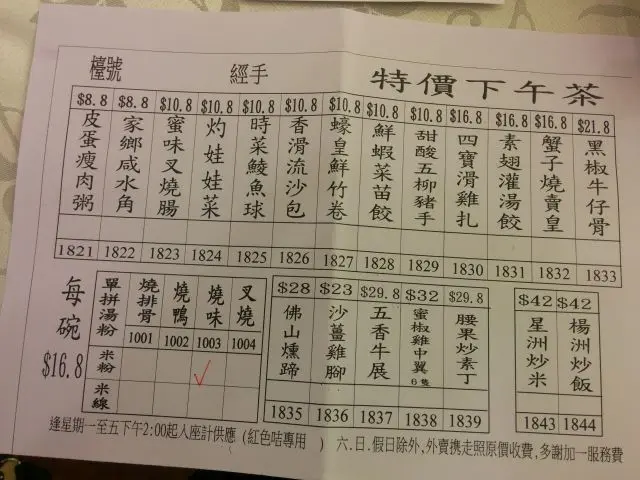 檯號 經手 特價下午茶
$8.8 $8.8 $10.8 $10.8 $10.8 $10.8 $10.8 $10.8 $10.8 $16.8 $16.8 $16.8 $21.8
皮蛋瘦肉粥
家鄉咸水角
蜜味叉燒腸
灼娃娃菜
時菜鯪魚球
香滑流沙包
蠔皇鮮竹卷
鮮蝦菜苗餃
甜酸五柳豬手
四寶滑雞扎
素翅灌湯餃
蟹子燒賣皇
黑椒牛仔骨
1821 1822 1823 1824 1825 1826 1827 1828 1829 1830 1831 1832 1833
每碗
$16.8
單拼湯粉
燒排骨
燒鴨
燒味
叉燒
1001 1002 1003 1004
米粉
米線
$28 $23 $29.8 $32 $29.8
佛山燻蹄
沙薑雞腳
五香牛展
蜜椒雞中翼6隻
腰果炒素丁
1835 1836 1837 1838 1839
$42 $42
星洲炒米
楊洲炒飯
1843 1844
逢星期一至五下午2:00起入座計供應 (紅色咭專用 ) 六.日.假日除外,外賣携走照原價收費,多謝加一服務費